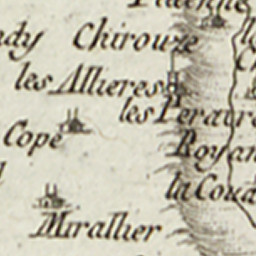 Chirouze
les Allieres
les Peraire
Cope
Royan
la Coua
Mirallier